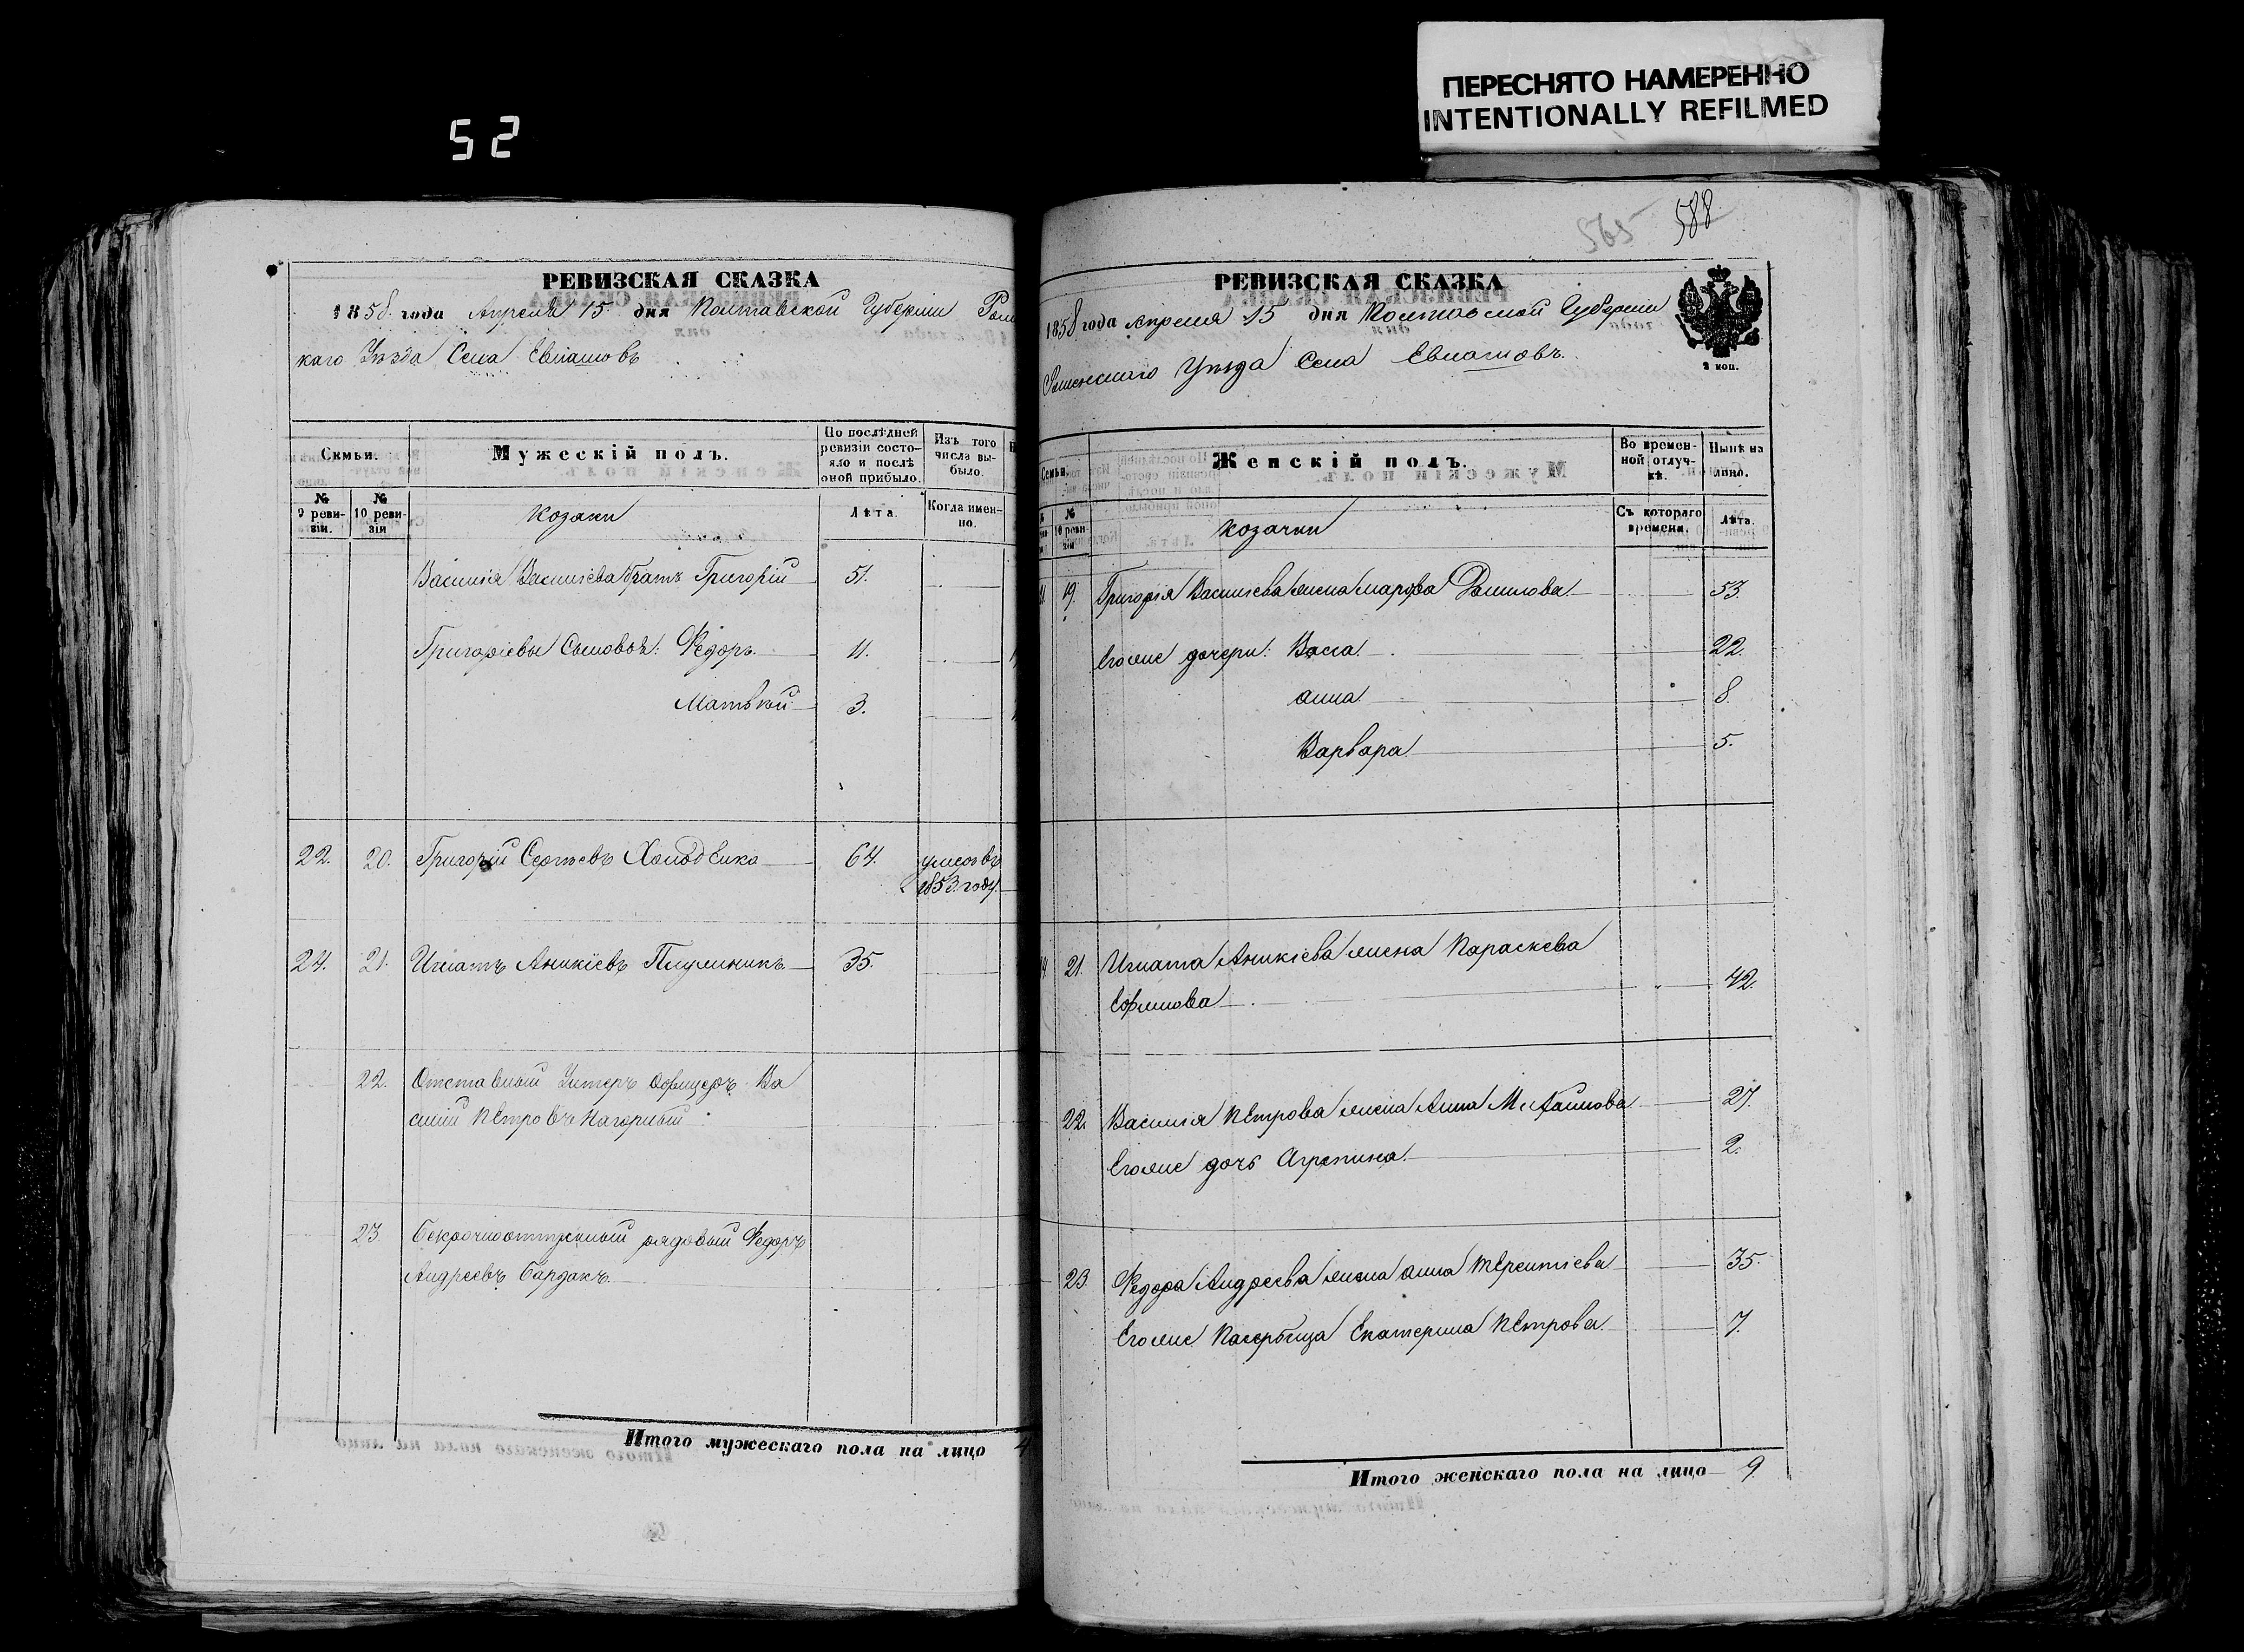 ПЕРЕСНЯТО НАМЕРЕННО
INTENTIONALLY REFILMED
52
РЕВИЗСКАЯ СКАЗКА
1858 года Апреля 15 дня Полтавской Губерніи Ром
каго Уѣзда Села Евлашовъ
Семьи.
Мужескій полъ.
По послѣдней ревизіи состояло и послѣ оной прибыло.
Изъ того числа выбыло.
№ 9 ревизіи.
№ 10 ревизіи
Козаки
Лѣта.
Когда именно.
Василія Васильева братъ Григорій 51.
Григоріевы Сыновья: Федоръ 11.
Матвѣй 3.
22. 20. Григорій Сергѣевъ 64. умеръ въ
1853 году.
24. 21. Игнатъ Аникіевъ 35.
22. Отставный Унтеръ Офицеръ Ва
силій Петровъ Нагорный
23. Безсрочноотпускный рядовый Федоръ
Андреевъ Бардакъ
Итого мужескаго пола на лицо 4
565 588
РЕВИЗСКАЯ СКАЗКА
1858 года Апреля 15 дня Полтавской Губерніи
Роменскаго Уѣзда Села Евлашовъ.
2 коп.
Семьи.
Женскій полъ.
Во временной отлучкѣ.
Нынѣ на лицо.
№ 10 ревизіи
Козачки
Съ котораго времени.
Лѣта.
19. Григорія Васильева жена Марфа Данилова 53.
Егоже дочери: Васса 22.
Анна 8.
Варвара 5.
21. Игната Аникіева жена Параскева
Ефимова 42.
22. Василія Петрова жена Анна Михайлова 27.
Егоже дочь Агрепина 2.
23 Федора Андреева жена Анна Терентіева 35.
Егоже Падчерица Екатерина Петрова 7.
Итого женскаго пола на лицо 9.